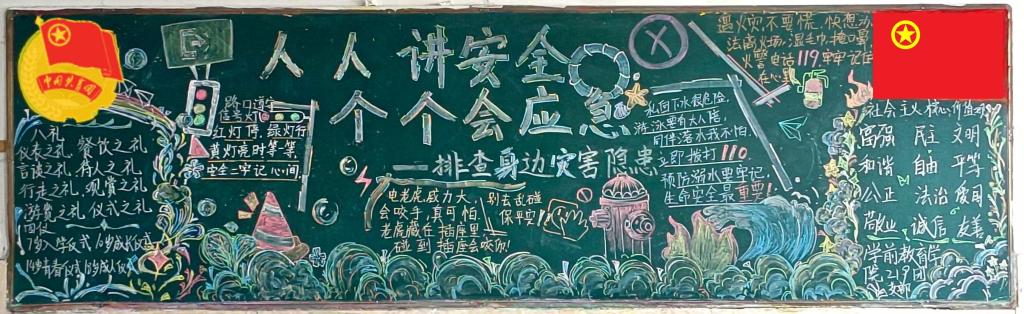 中国共青团
八礼
仪表之礼、餐饮之礼
言谈之礼、待人之礼
行走之礼、观赏之礼
游览之礼、仪式之礼
四仪
7岁入学仪式 10岁成长仪式
14岁青春仪式 18岁成人仪式
路口遵守
信号灯
红灯停，绿灯行
黄灯亮时等等
安全二字记心间
人人讲安全
个个会应急
——排查身边灾害隐患
电老虎威力大，
会咬手，真可怕，
老虎藏在插座里，
碰到插座会咬你！
别去乱碰
保平安！
游泳要有大人陪
同伴落水我不怕
立即拨打110
预防溺水要牢记
生命安全最重要！
遇火灾不要慌，快想办
法离火场，湿毛巾，掩口鼻
火警电话119牢牢记住
在心里
社会主义核心价值观
富强 民主 文明
和谐 自由 平等
公正 法治 爱国
敬业 诚信 友善
学前教育学
院219团
支部